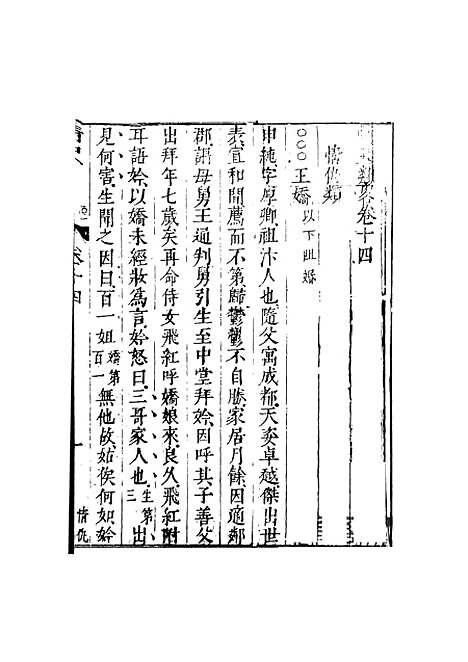 類畧卷十四
情仇類
○○○王嬌以下阻婚
申純字厚卿祖汴人也隨父寓成都天姿卓越傑出世
表宣和間薦而不第歸鬱鬱不自勝家居月餘因適鄰
郡謁母舅王通判舅引生至中堂拜妗因呼其子善父
出拜年七歲矣再命侍女飛紅呼嬌娘來良久飛紅附
耳語妗以嬌未經妝爲言妗怒曰三哥家人也生第三出
見何害生聞之因曰百一姐嬌第百一無他故姑俟何如妗
卷十四
一
情仇